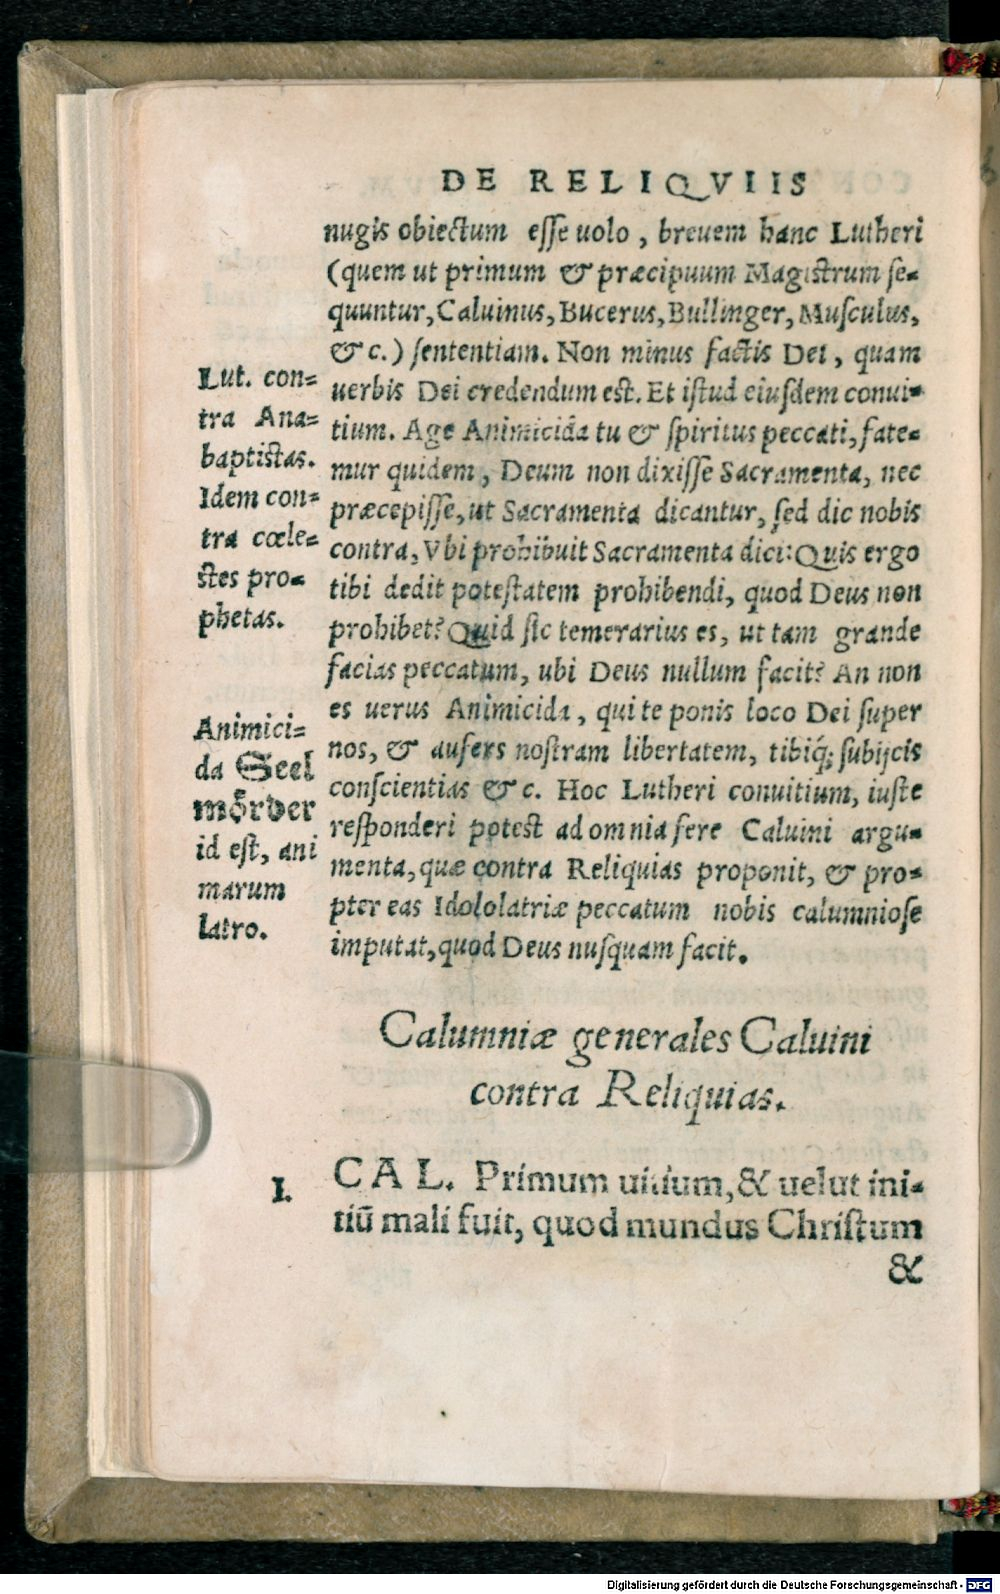 DE RELIQVIIS
nugis obiectum esse uolo, breuem hanc Lutheri
(quem ut primum & præcipuum Magistrum se-
quuntur, Caluinus, Bucerus, Bullinger, Musculus,
&c.) sententiam. Non minus factis Dei, quam
uerbis Dei credendum est. Et istud eiusdem conui-
tium. Age Animicida tu & spiritus peccati, fate-
mur quidem, Deum non dixisse Sacramenta, nec
præcepisse, ut Sacramenta dicantur, sed dic nobis
contra, Vbi prohibuit Sacramenta dici: Quis ergo
tibi dedit potestatem prohibendi, quod Deus non
prohibet? Quid sic temerarius es, ut tam grande
facias peccatum, ubi Deus nullum facit? An non
es uerus Animicida, qui te ponis loco Dei super
nos, & aufers nostram libertatem, tibiq́; subijcis
conscientias &c. Hoc Lutheri conuitium, iuste
responderi potest ad omnia fere Caluini argu-
menta, quæ contra Reliquias proponit, & pro-
pter eas Idololatriæ peccatum nobis calumniose
imputat, quod Deus nusquam facit.
Lut. con=
tra Ana=
baptistas.
Idem con=
tra cœle=
stes pro-
phetas.
Animici=
da Seel
mörder
id est, ani
marum
latro.
Calumniæ generales Caluini
contra Reliquias.
I.
CAL. Primum uitium, & uelut ini-
tiū mali fuit, quod mundus Christum
&
Digitalisierung gefördert durch die Deutsche Forschungsgemeinschaft - DFG